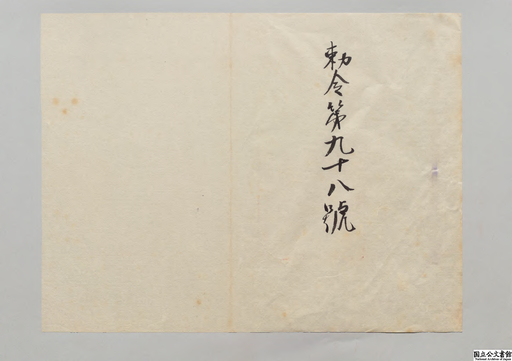 勅令第九十八號
国立公文書館
National Archives of Japan